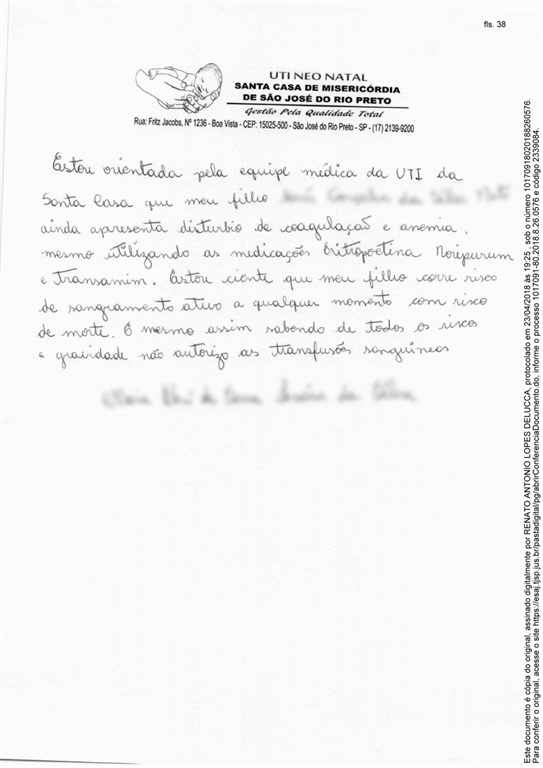 fls. 38
UTI NEO NATAL
SANTA CASA DE MISERICÓRDIA
DE SÃO JOSÉ DO RIO PRETO
Gestão Pela Qualidade Total
Rua: Fritz Jacobs, Nº 1236 - Boa Vista - CEP: 15025-500 - São José do Rio Preto - SP - (17) 2139-9200
Estou orientada pela equipe médica da UTI da
Santa Casa que meu filho
ainda apresenta disturbio de coagulação e anemia,
mesmo utilizando as medicações Eritropoetina Noripurum
e Transamim. Estou ciente que meu filho corre risco
de sangramento ativo a qualquer momento com risco
de morte. E mesmo assim sabendo de todos os riscos
e gravidade não autorizo as transfusões sanguíneas
Este documento é cópia do original, assinado digitalmente por RENATO ANTONIO LOPES DELUCCA, protocolado em 23/04/2018 às 19:25 , sob o número 10170918020188260576.
Para conferir o original, acesse o site https://esaj.tjsp.jus.br/pastadigital/pg/abrirConferenciaDocumento.do, informe o processo 1017091-80.2018.8.26.0576 e código 2339084.